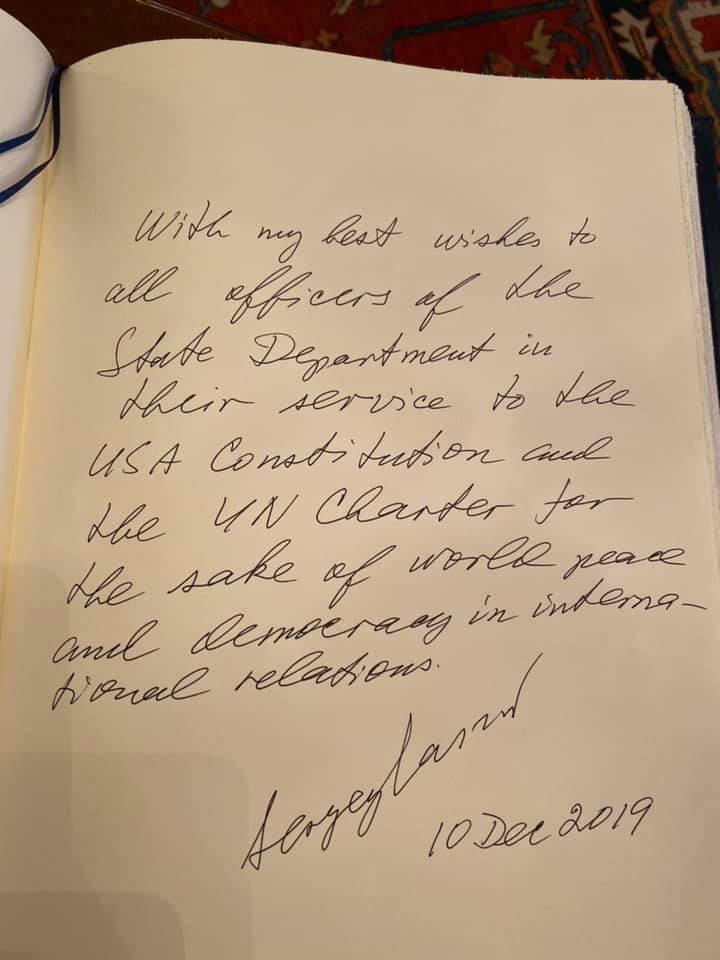 With my best wishes to
all officers of the
State Department in
their service to the
USA Constitution and
the UN Charter for
the sake of world peace
and democracy in interna-
tional relations.
Sergey Lavrov
10 Dec 2019